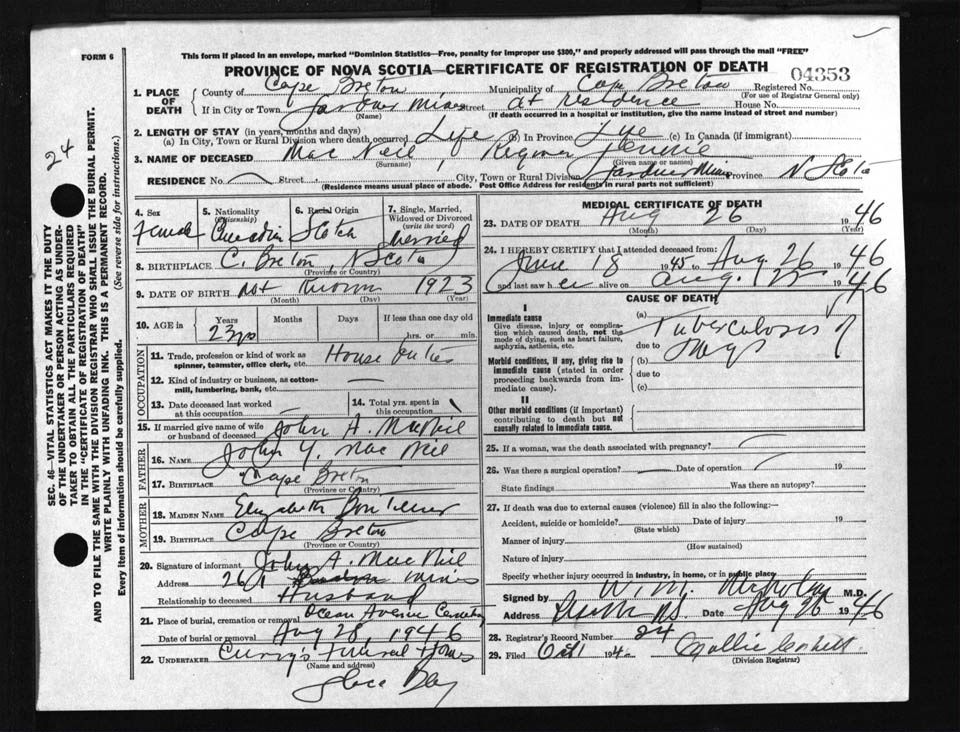 FORM 6
This form if placed in an envelope, marked "Dominion Statistics—Free, penalty for improper use $300," and properly addressed will pass through the mail "FREE"
PROVINCE OF NOVA SCOTIA—CERTIFICATE OF REGISTRATION OF DEATH
04353
1. PLACE OF DEATH
County of Cape Breton Municipality of Cape Breton Registered No.
(For use of Registrar General only)
If in City or Town Gardner Mines Street at residence House No.
(Name) (If death occurred in a hospital or institution, give the name instead of street and number)
2. LENGTH OF STAY (in years, months and days)
(a) In City, Town or Rural Division where death occurred Life (b) In Province Life (c) In Canada (if immigrant)
3. NAME OF DECEASED Mac Neil,
(Surname) (Given name or names)
RESIDENCE No. Street City, Town or Rural Division Gardner Mines Province N Scotia
(Residence means usual place of abode. Post Office Address for residents in rural parts not sufficient)
24
SEC. 46—VITAL STATISTICS ACT MAKES IT THE DUTY
OF THE UNDERTAKER OR PERSON ACTING AS UNDER-
TAKER TO OBTAIN ALL THE PARTICULARS REQUIRED
IN THE "CERTIFICATE OF REGISTRATION OF DEATH"
AND TO FILE THE SAME WITH THE DIVISION REGISTRAR WHO SHALL ISSUE THE BURIAL PERMIT.
WRITE PLAINLY WITH UNFADING INK. THIS IS A PERMANENT RECORD.
Every item of information should be carefully supplied. (See reverse side for instructions.)
4. Sex
Female
5. Nationality (Citizenship)
Canadian
6. Racial Origin
Scotch
7. Single, Married, Widowed or Divorced (write the word)
Married
8. BIRTHPLACE C. Breton, N Scotia
(Province or Country)
9. DATE OF BIRTH Not Known 1923
(Month) (Day) (Year)
10. AGE in Years Months Days If less than one day old
23 yrs hrs. or min.
OCCUPATION
11. Trade, profession or kind of work as spinner, teamster, office clerk, etc. House Duties
12. Kind of industry or business, as cotton-mill, lumbering, bank, etc.
13. Date deceased last worked at this occupation
14. Total yrs. spent in this occupation
15. If married give name of wife or husband of deceased John A. MacNeil
FATHER
16. NAME John Y. Mac Neil
17. BIRTHPLACE Cape Breton
(Province or Country)
MOTHER
18. MAIDEN NAME Elizabeth
19. BIRTHPLACE Cape Breton
(Province or Country)
20. Signature of informant John A. MacNeil
Address 261 Mines
Relationship to deceased Husband
21. Place of burial, cremation or removal Ocean Avenue Cemetery
Date of burial or removal Aug 28, 1946
22. UNDERTAKER Curry's Funeral Home
(Name and address)
Glace Bay
MEDICAL CERTIFICATE OF DEATH
23. DATE OF DEATH Aug 26 1946
(Month) (Day) (Year)
24. I HEREBY CERTIFY that I attended deceased from:
June 18 1945 to Aug 26 1946
and last saw her alive on Aug. 1946
CAUSE OF DEATH
I
Immediate cause
Give disease, injury or complication which caused death, not the mode of dying, such as heart failure, asphyxia, asthenia, etc.
(a) Tuberculosis of
due to Lungs
Morbid conditions, if any, giving rise to immediate cause (stated in order proceeding backwards from immediate cause).
(b)
due to
(c)
II
Other morbid conditions (if important) contributing to death but not causally related to immediate cause.
25. If a woman, was the death associated with pregnancy?
26. Was there a surgical operation? Date of operation 19
State findings Was there an autopsy?
27. If death was due to external causes (violence) fill in also the following:—
Accident, suicide or homicide? Date of injury 19
(State which)
Manner of injury
(How sustained)
Nature of injury
Specify whether injury occurred in industry, in home, or in public place
Signed by W. M. M.D.
Address Date Aug 26 1946
28. Registrar's Record Number 24
29. Filed Oct 1 194
(Division Registrar)